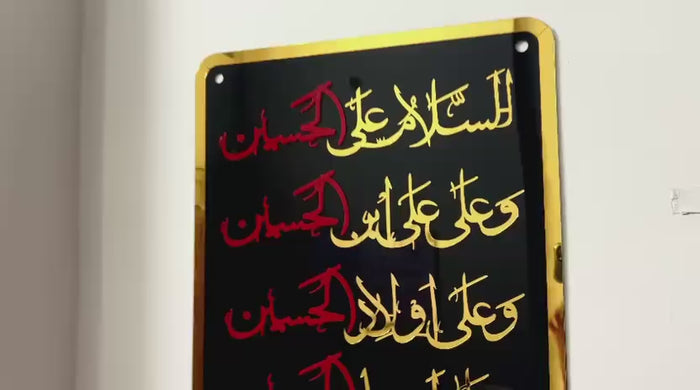 السَّلامُ عَلَى الحسين
وَعَلى عَلى ابن الحسين
وَعَلى اولاد الحسين